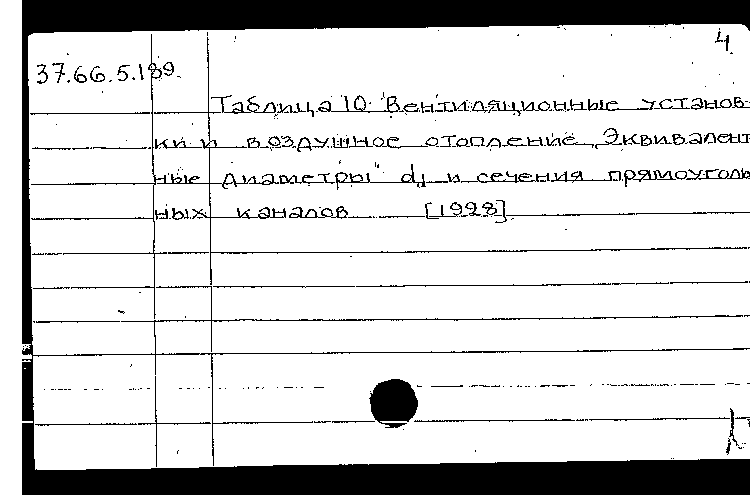 4
37.66.5.189.
Таблица 10. Вентиляционные установ-
ки и воздушное отопление „Эквивалент
ные диаметры" d₁ и сечения прямоуголь
ных каналов [1928]